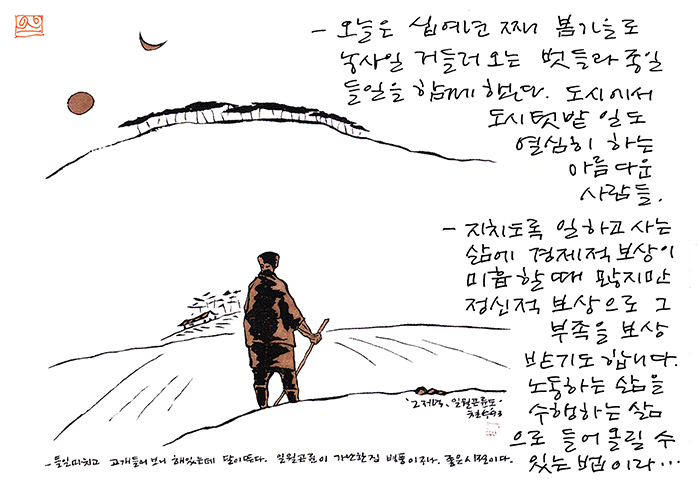 - 오늘은 십여년 째 봄가을로
농사일 거들러 오는 벗들과 종일
들일을 함께 했다. 도시에서
도시텃밭 일도
열심히 하는
아름다운
사람들.
- 지치도록 일하고 사는
삶에 경제적 보상이
미흡할 때 많지만
정신적 보상으로 그
부족을 보상
받기도 합니다.
노동하는 삶을
수행하는 삶
으로 들어 올릴 수
있는 법이라…
일월곤륜도
- 들일 마치고 고개들어 보니 해 있는데 달이 뜬다. 일월곤륜이 가난한 집 병풍이구나. 좋은 시절이다.